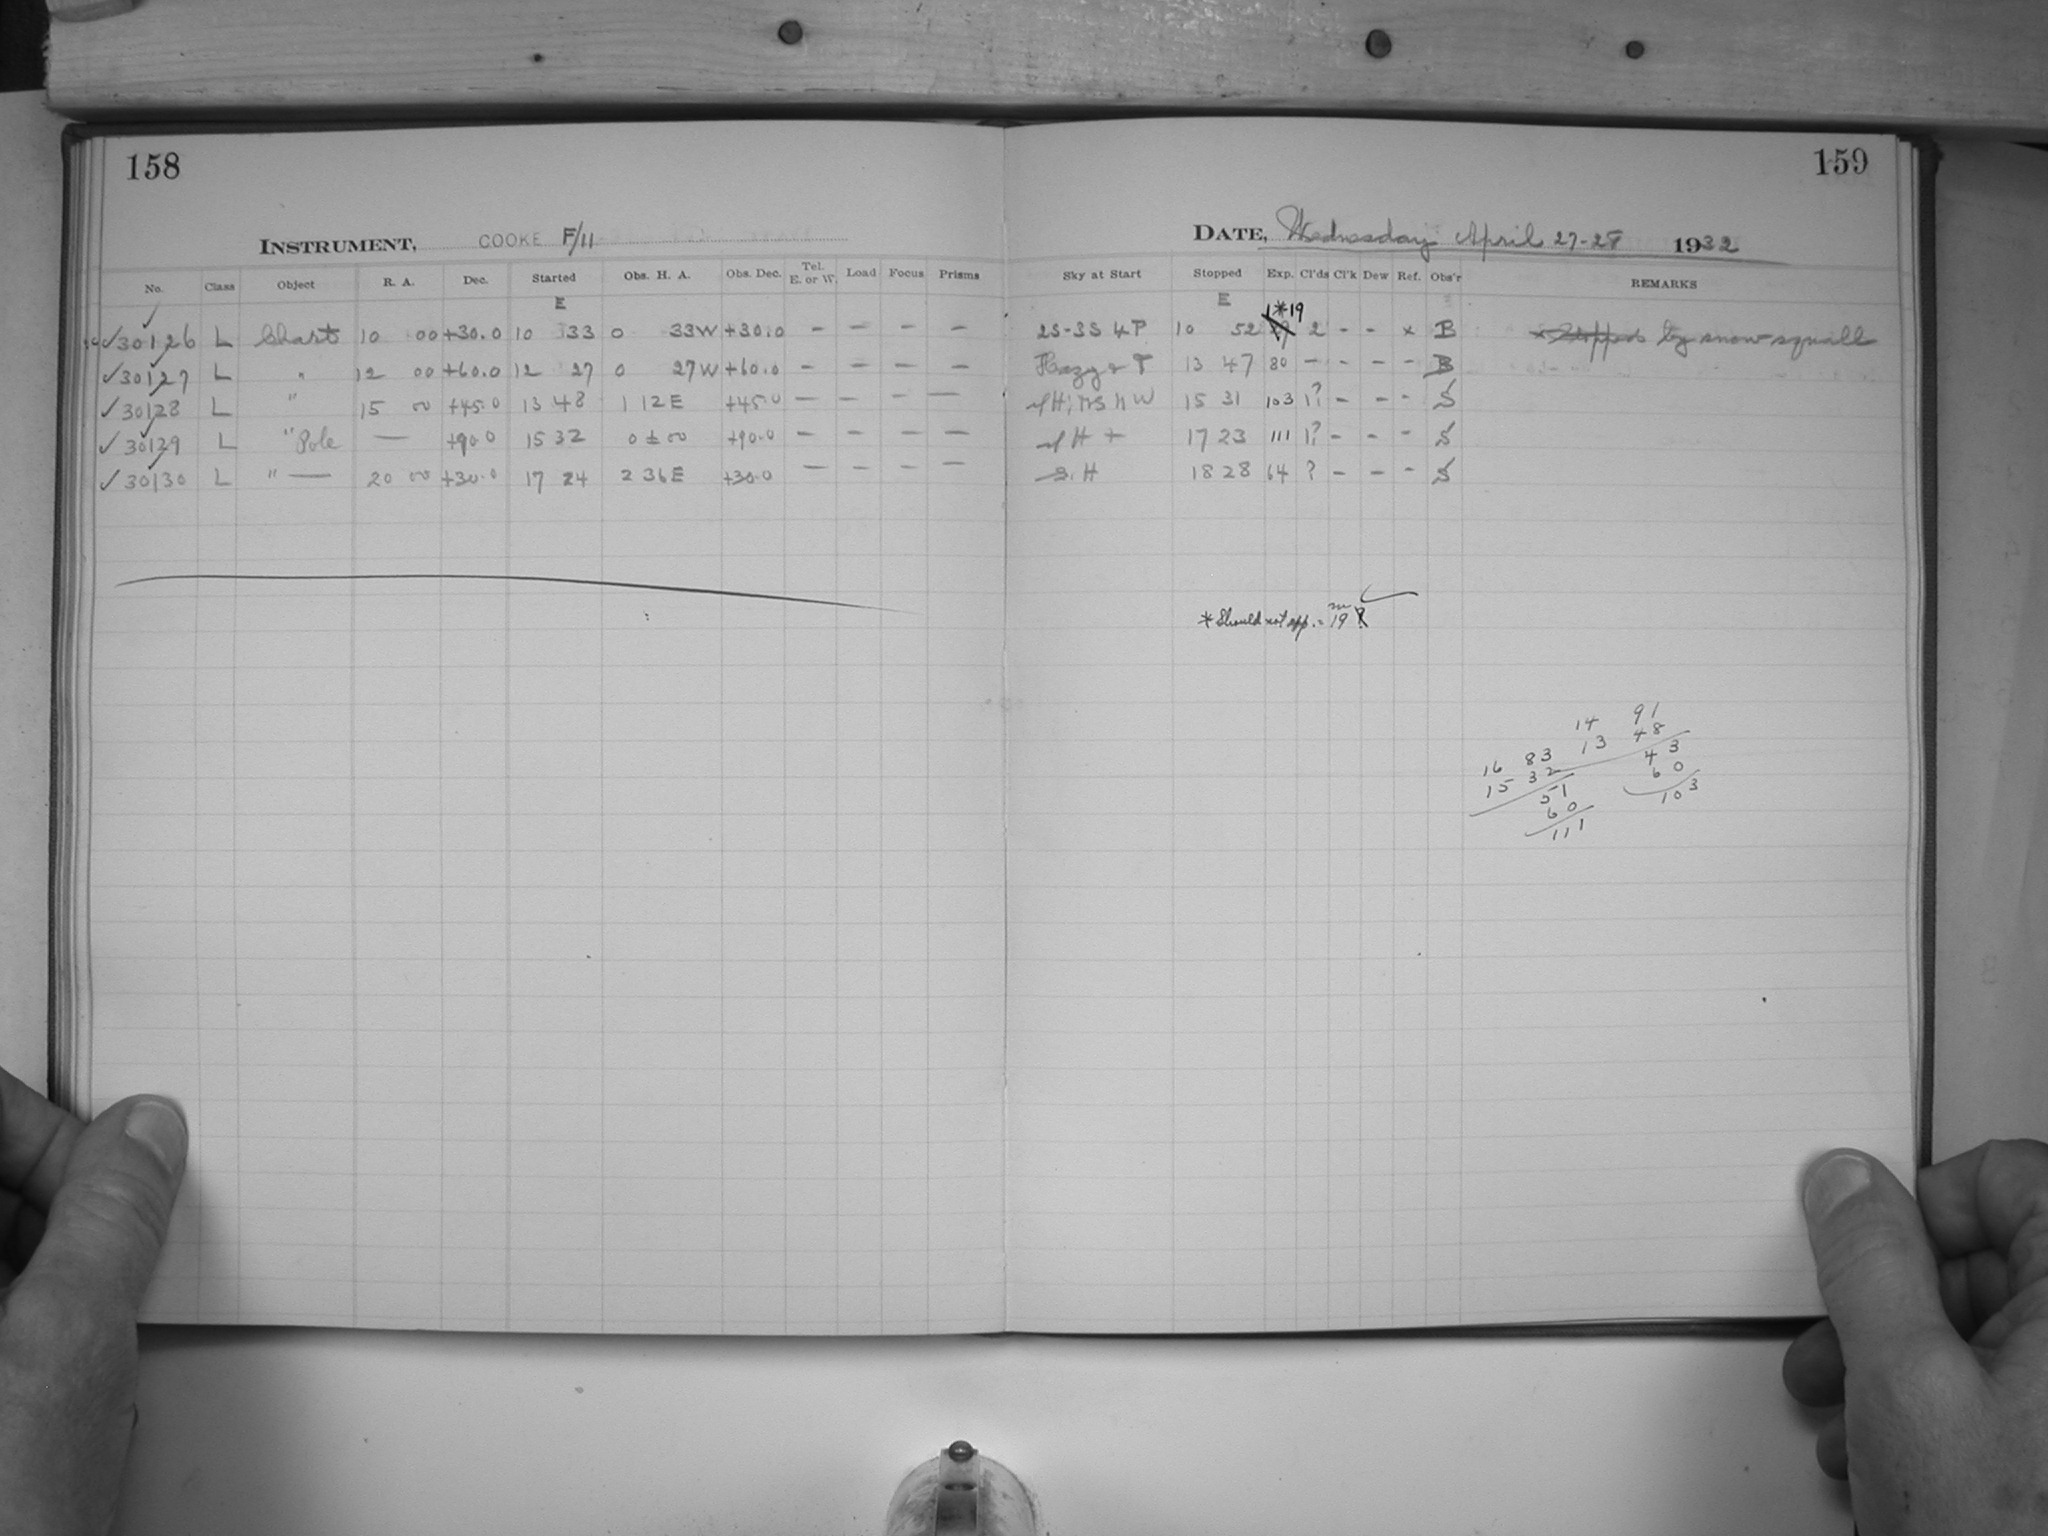 158
159
INSTRUMENT, COOKE F/11
DATE, Wednesday April 27-28 1932
No. Class Object R. A. Dec. Started Obs. H. A. Obs. Dec. Tel. E. or W. Load Focus Prisms Sky at Start Stopped Exp. Cl'ds Cl'k Dew Ref. Obs'r REMARKS
E E 1*19
✓30126 L Chart 10 00 +30.0 10 33 0 33W +30.0 - - - - 2S-3S 4P 10 52 2 - - x B x Stopped by snow squall
✓30127 L " 12 00 +60.0 12 27 0 27W +60.0 - - - - Hazy 13 47 80 - - - - B
✓30128 L " 15 00 +45.0 13 48 1 12E +45.0 - - - - 15 31 103 1? - - - S
✓30129 L " Pole — +90.0 15 32 0 ± 00 +90.0 - - - - H + 17 23 111 1? - - - S
✓30130 L " — 20 00 +30.0 17 24 2 36E +30.0 - - - - S. H 18 28 64 ? - - - S
* Should not app. = 19
14 91
13 48
43
60
103
16 83
15 32
51
60
111